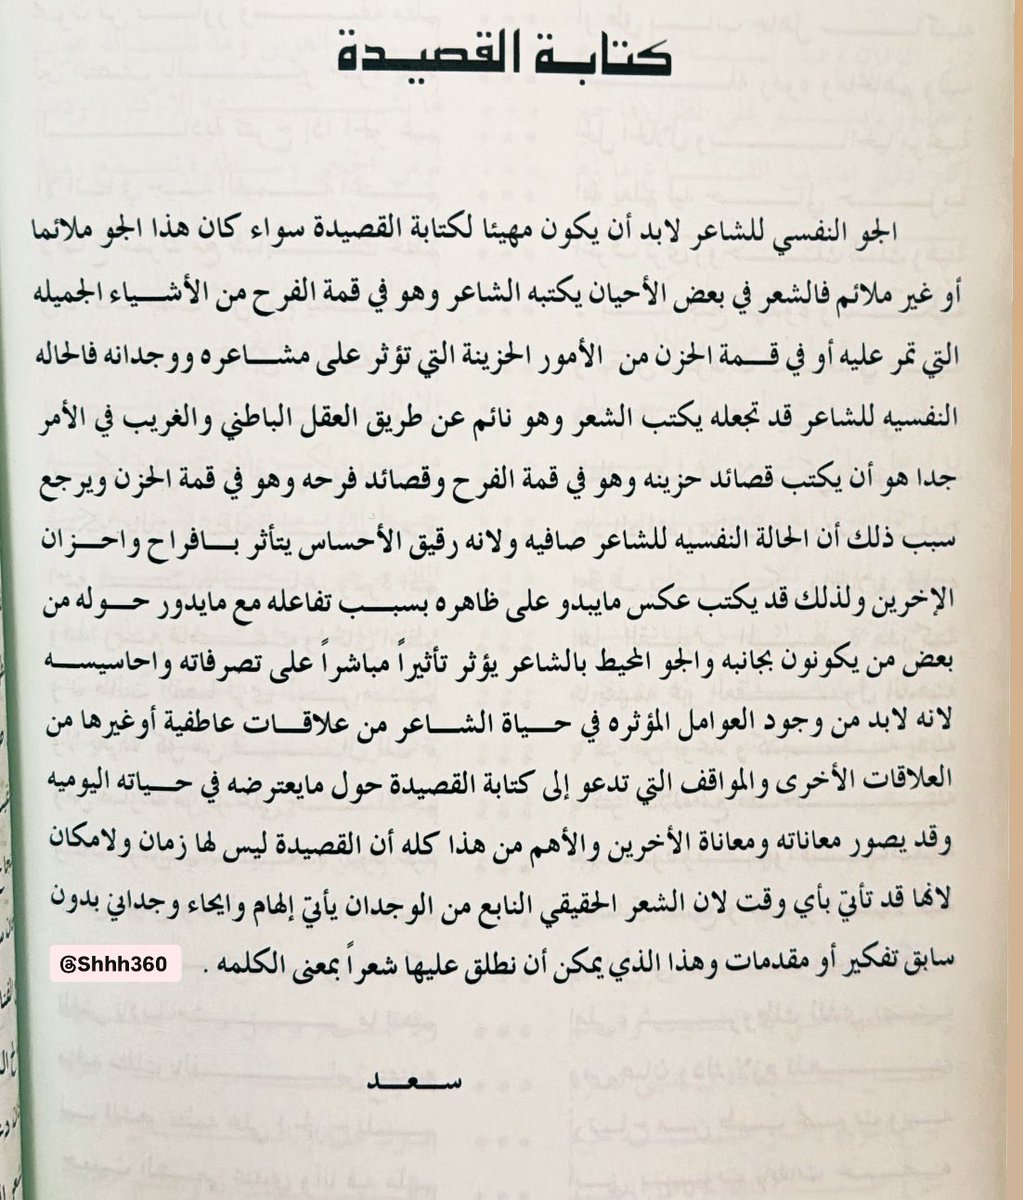 كتابة القصيدة
الجو النفسي للشاعر لابد أن يكون مهيئا لكتابة القصيدة سواء كان هذا الجو ملائما
أو غير ملائم فالشعر في بعض الأحيان يكتبه الشاعر وهو في قمة الفرح من الأشياء الجميله
التي تمر عليه أو في قمة الحزن من الأمور الحزينة التي تؤثر على مشاعره ووجدانه فالحاله
النفسيه للشاعر قد تجعله يكتب الشعر وهو نائم عن طريق العقل الباطني والغريب في الأمر
جدا هو أن يكتب قصائد حزينه وهو في قمة الفرح وقصائد فرحه وهو في قمة الحزن ويرجع
سبب ذلك أن الحالة النفسيه للشاعر صافيه ولانه رقيق الأحساس يتأثر بافراح واحزان
الإخرين ولذلك قد يكتب عكس مايبدو على ظاهره بسبب تفاعله مع مايدور حوله من
بعض من يكونون بجانبه والجو المحيط بالشاعر يؤثر تأثيراً مباشراً على تصرفاته واحاسيسه
لانه لابد من وجود العوامل المؤثره في حياة الشاعر من علاقات عاطفية أوغيرها من
العلاقات الأخرى والمواقف التي تدعو إلى كتابة القصيدة حول مايعترضه في حياته اليوميه
وقد يصور معاناته ومعاناة الأخرين والأهم من هذا كله أن القصيدة ليس لها زمان ولامكان
لانها قد تأتي بأي وقت لان الشعر الحقيقي النابع من الوجدان يأتي إلهام وايحاء وجداني بدون
سابق تفكير أو مقدمات وهذا الذي يمكن أن نطلق عليها شعراً بمعنى الكلمه .
@Shhh360
سعد